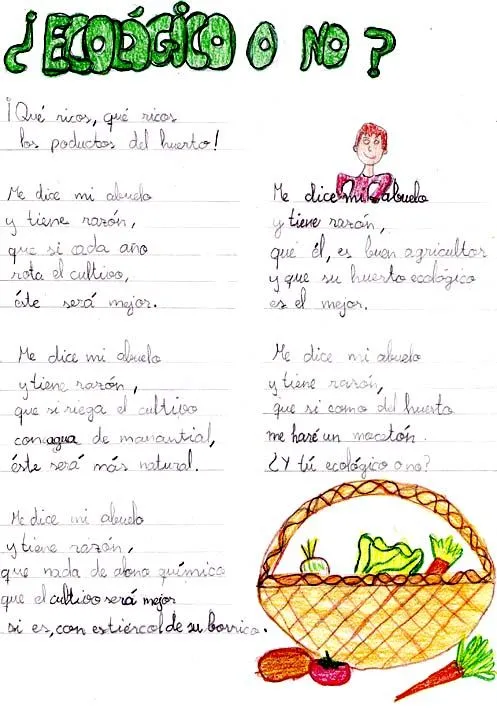 ¿ECOLÓGICO O NO?
¡Qué ricos, qué ricos
los poductos del huerto!
Me dice mi abuelo
y tiene razón,
que si cada año
rota el cultivo,
éste será mejor.
Me dice mi abuelo
y tiene razón,
que si riega el cultivo
con agua de manantial,
éste será más natural.
Me dice mi abuelo
y tiene razón,
que nada de abono químico
que el cultivo será mejor
si es, con estiércol de su borrico.
Me dice mi abuelo
y tiene razón,
que él, es buen agricultor
y que su huerto ecológico
es el mejor.
Me dice mi abuelo
y tiene razón,
que si como del huerto
me haré un mocetón.
¿Y tú ecológico o no?